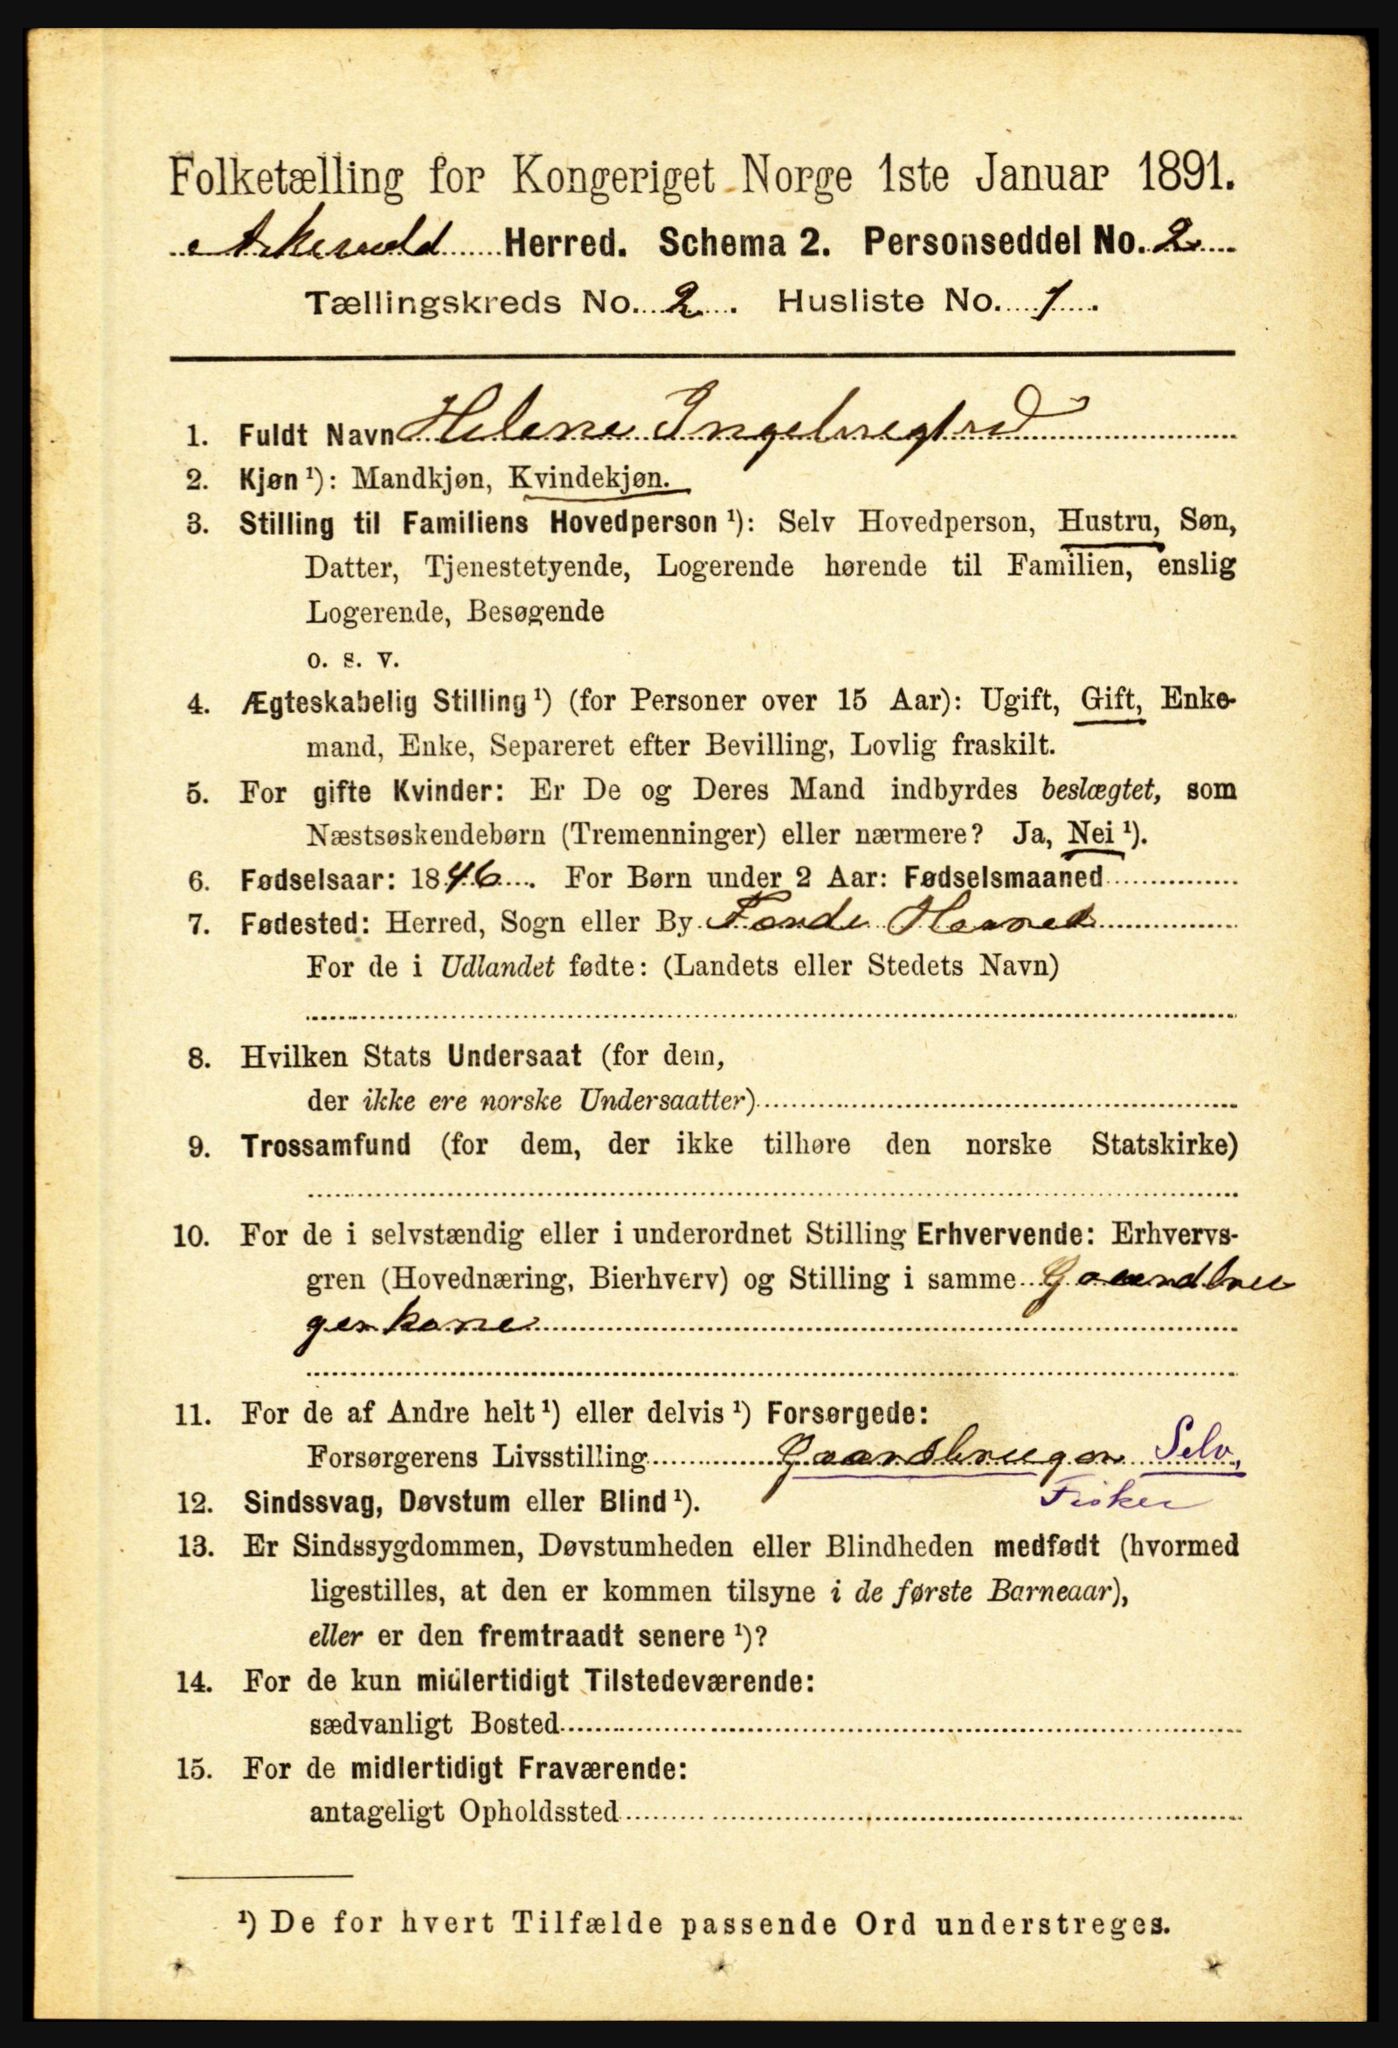 Folketælling for Kongeriget Norge 1ste Januar 1891.
Askevold Herred. Schema 2. Personseddel No. 2
Tællingskreds No. 2. Husliste No. 1.
1. Fuldt Navn Helene Ingebregtsd
2. Kjøn ¹): Mandkjøn, Kvindekjøn.
3. Stilling til Familiens Hovedperson ¹): Selv Hovedperson, Hustru, Søn,
Datter, Tjenestetyende, Logerende hørende til Familien, enslig
Logerende, Besøgende
o. s. v.
4. Ægteskabelig Stilling ¹) (for Personer over 15 Aar): Ugift, Gift, Enke-
mand, Enke, Separeret efter Bevilling, Lovlig fraskilt.
5. For gifte Kvinder: Er De og Deres Mand indbyrdes beslægtet, som
Næstsøskendebørn (Tremenninger) eller nærmere? Ja, Nei ¹).
6. Fødselsaar: 1846. For Børn under 2 Aar: Fødselsmaaned
7. Fødested: Herred, Sogn eller By Førde Herred
For de i Udlandet fødte: (Landets eller Stedets Navn)
8. Hvilken Stats Undersaat (for dem,
der ikke ere norske Undersaatter)
9. Trossamfund (for dem, der ikke tilhøre den norske Statskirke)
10. For de i selvstændig eller i underordnet Stilling Erhvervende: Erhvervs-
gren (Hovednæring, Bierhverv) og Stilling i samme Gaardbru
gerkone
11. For de af Andre helt ¹) eller delvis ¹) Forsørgede:
Forsørgerens Livsstilling Gaardbruger Selv.
12. Sindssvag, Døvstum eller Blind ¹). Fisker
13. Er Sindssygdommen, Døvstumheden eller Blindheden medfødt (hvormed
ligestilles, at den er kommen tilsyne i de første Barneaar),
eller er den fremtraadt senere ¹)?
14. For de kun midlertidigt Tilstedeværende:
sædvanligt Bosted
15. For de midlertidigt Fraværende:
antageligt Opholdssted
¹) De for hvert Tilfælde passende Ord understreges.